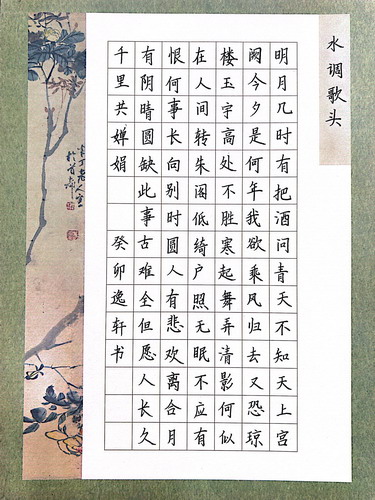 水调歌头
明月几时有把酒问青天不知天上宫
阙今夕是何年我欲乘风归去又恐琼
楼玉宇高处不胜寒起舞弄清影何似
在人间转朱阁低绮户照无眠不应有
恨何事长向别时圆人有悲欢离合月
有阴晴圆缺此事古难全但愿人长久
千里共婵娟 癸卯逸轩书